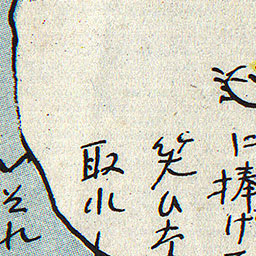 に捧げ
笑ひ
取れ
それ